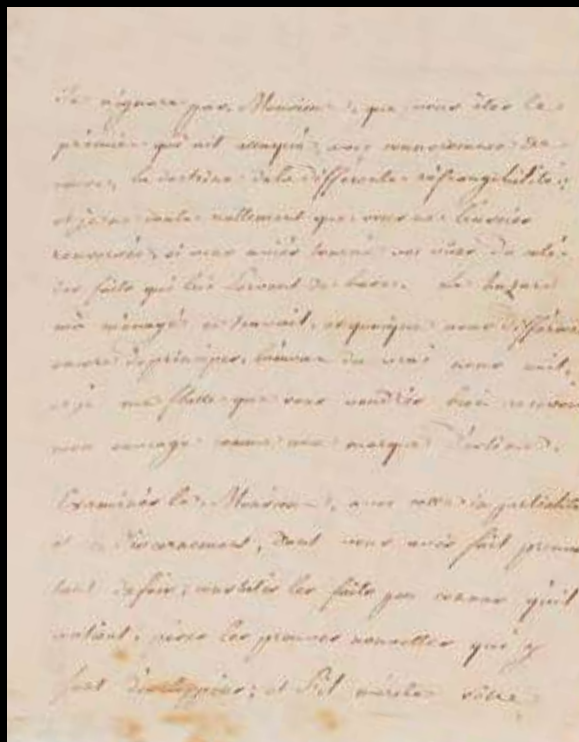 Je n'ignore pas, Monsieur, que vous êtes le
premier qui ait attaqué, avec connoissance de
cause, la doctrine de la differente réfrangibilité;
et je ne doute nullement que vous ne l'eussiés
renversée, si vous aviés tourné vos vues du coté
des faits qui lui servent de base. Le hazard
m'a ménagé ce travail, et quoique nous differions
encore de principes, l'amour du vrai nous unit,
et je me flatte que vous voudrés bien recevoir
mon ouvrage comme une marque d'estime.
Examinés le, Monsieur, avec cette impartialité
et ce discernement, dont vous avés fait preuve
tant de fois; les faits peu connus qu'il
contient, pesés les preuves nouvelles qui y
sont développées; et s'il mérite votre